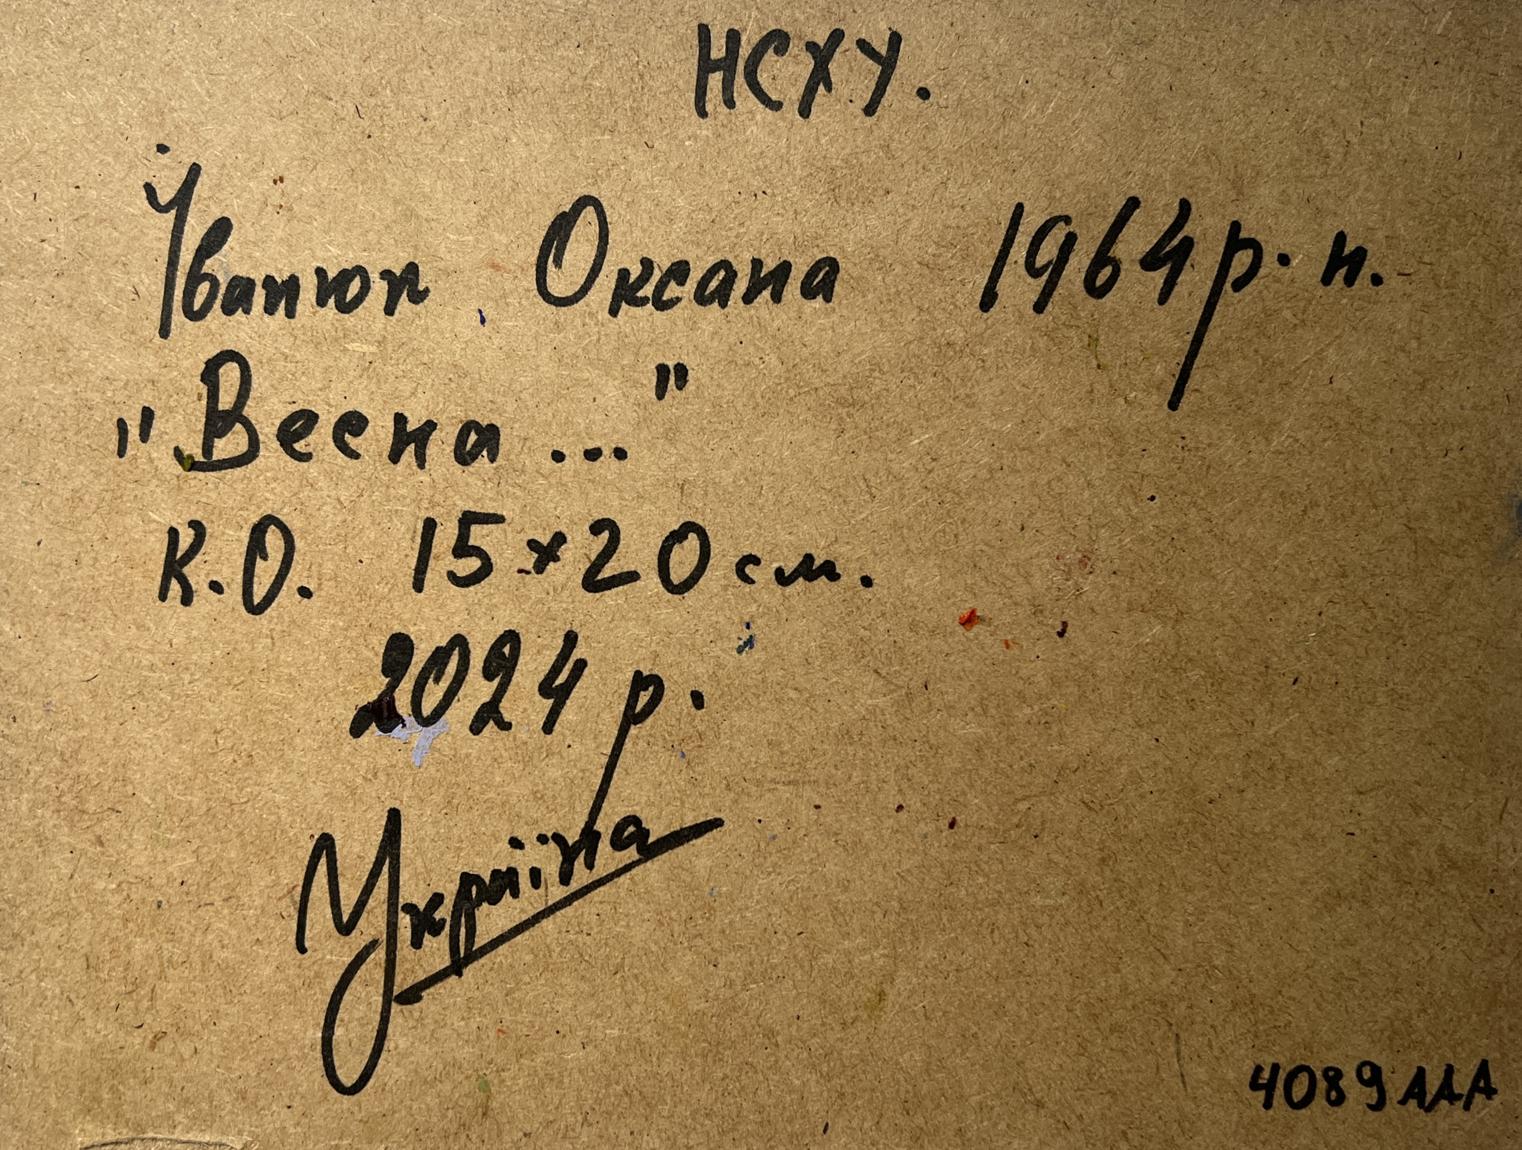 НСХУ.
Іванюк Оксана 1964 р. н.
"Весна ..."
К.О. 15×20 см.
2024 р.
Україна
4089ААА